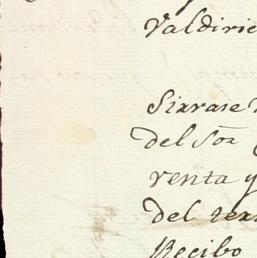 Valdivie
Sirvase
del Sor
venta y
del
Recibo